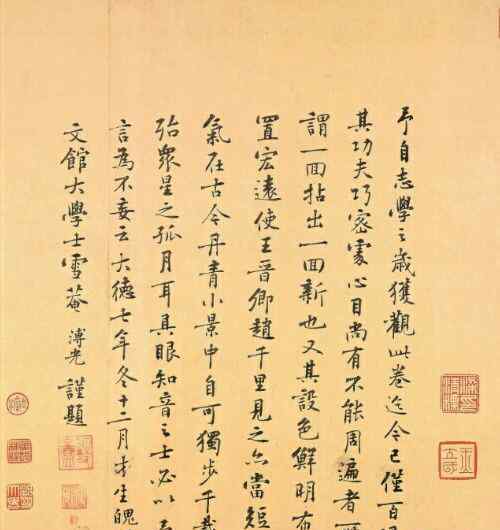 予自志學之歲獲觀此卷迄今已僅百
其功夫巧密處心目尚有不能周遍者
謂一面拈出一面新也又其設色鮮明布
置宏遠使王晉卿趙千里見之亦當短
氣在古今丹青小景中自可獨步千載
殆眾星之孤月耳具眼知音之士必以
言為不妄云大德七年冬十二月才生魄
文館大學士雪菴溥光謹題